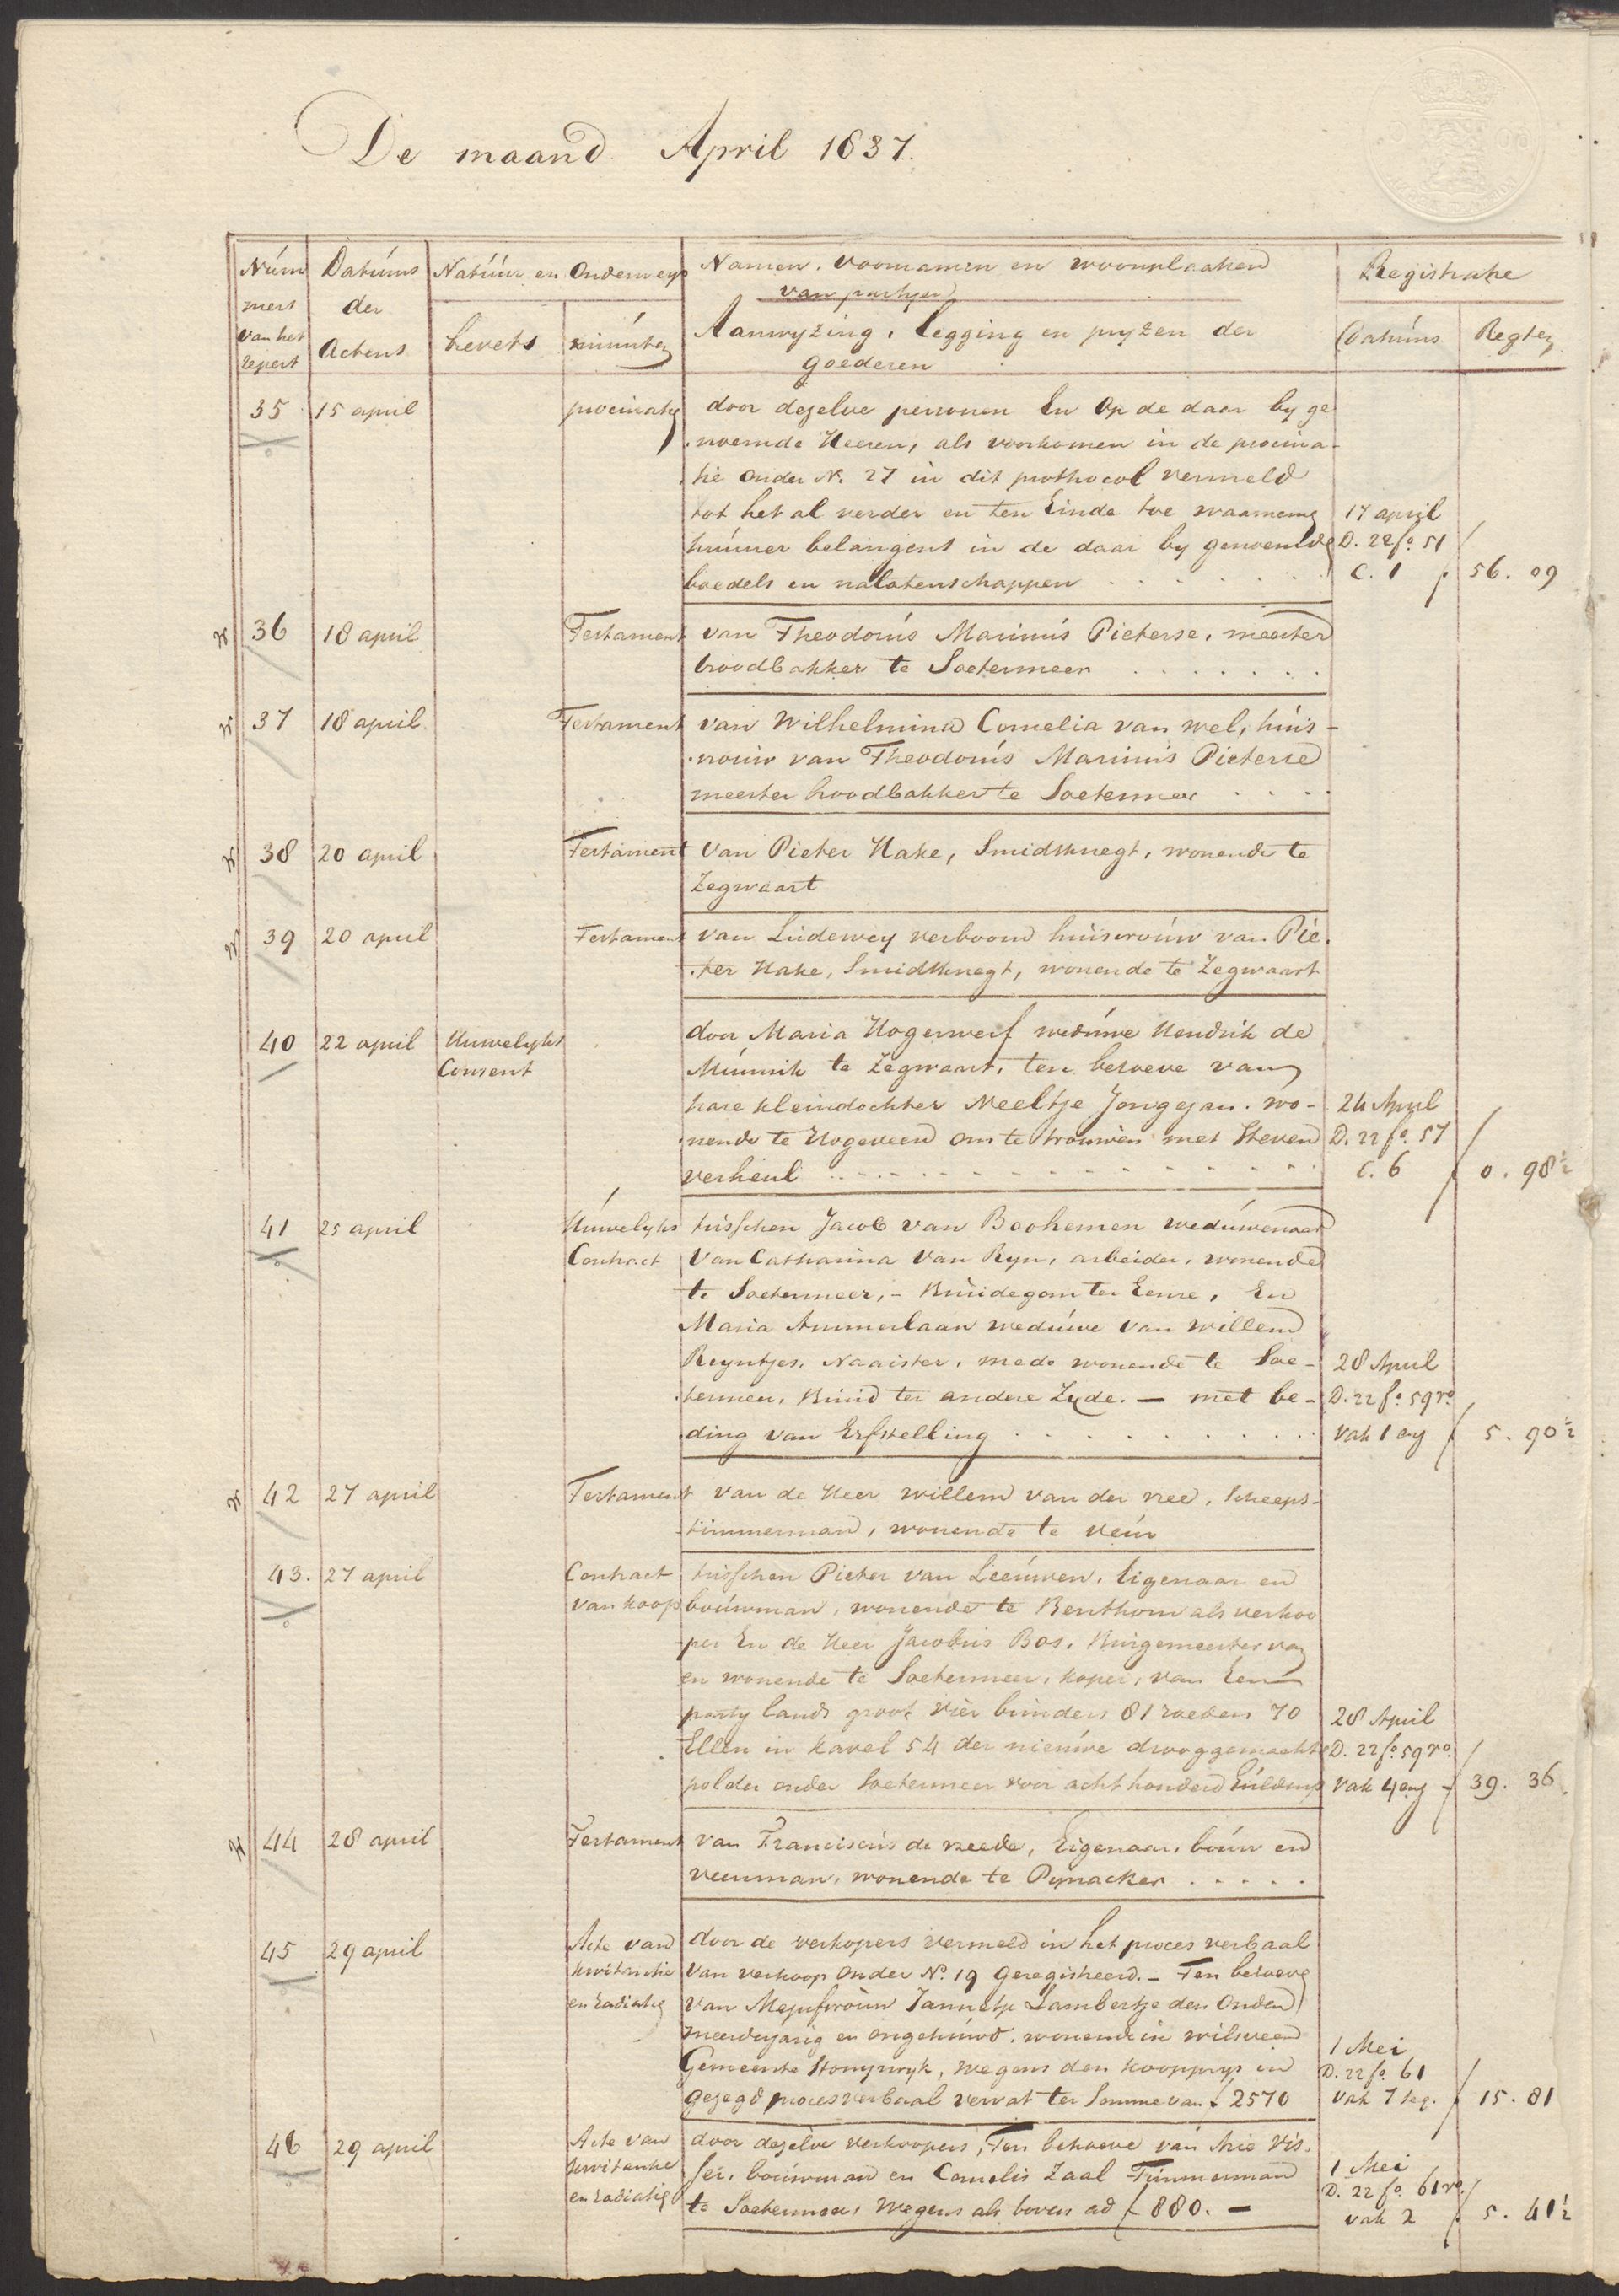 De maand April 1837.
Núm Datúms Natúúr en Onderwerp Namen. Voornamen en woonplaatsen Registratie
mers der van partyen
van het Actens brevets minúten Aanwyzing, legging en pryzen der Datúms Regten
repert goederen
35 15 april procuratie door dezelve personen En Op de daar by ge
noemde Heeren, als voorkomen in de procura-
tie onder N. 27 in dit prothocol vermeld
tot het al verder en ten Einde toe waarneming 17 april
húnner belangens in de daar by genoemde D. 22 fo. 51
boedels en nalatenschappen C. 1 f 56. 09
36 18 april Testament van Theodorús Marinús Pieterse, meester
broodbakker te Soetermeer
37 18 april Testament van Wilhelmina Cornelia van Wel, húis-
vrouw van Theodorús Marinús Pieterse
meester broodbakker te Soetermeer
38 20 april Testament Van Pieter Hake, Smidsknegt, wonende te
Zegwaart
39 20 april Testament van Lúdewey verboom húisvroúw van Pie-
ter Hake, Smidsknegt, wonende te Zegwaart
40 22 april Húwelyks door Maria Hogerwerf wedúwe Hendrik de
Consent Múnnik te Zegwaart, ten behoeve van
hare kleindochter Neeltje Jongejan. wo- 24 April
nende te Hogeveen om te troúwen met Steven D. 22 fo. 57
verheul C. 6 f 0. 98½
41 25 april Húwelyks tússchen Jacob van Boohemen wedúwenaar
Contract Van Catharina Van Ryn, arbeider, wonende
te Soetermeer, - Brúidegom ter Eenre, En
Maria Ammerlaan wedúwe van Willem
Reyntjes. Naaister, mede wonende te Soe- 28 April
termeer, Brúid ter andere Zyde. - met be- D. 22 fo. 59 ro.
ding van Erfstelling vak 1 env f 5. 90½
42 27 april Testament van de Heer Willem van der nee, Scheeps-
timmerman, wonende te Veúr
43. 27 april Contract tússchen Pieter van Leeúwen. Eigenaar en
van koop boúwman, wonende te Benthorn als verkoo
per En de Heer Jacobús Bos. Búrgemeester van
en wonende te Soetermeer, koper, van Een
party lands groot vier búnders 81 roeden 70 28 April
Ellen in kavel 54 der nieúwe drooggemaakte D. 22 fo. 59 ro.
polder onder Soetermeer voor acht honderd Gúldens vak 4 env f 39. 36
44 28 april Testament van Franciscús de reede, Eigenaar, boúw en
veenman, wonende te Pynacker
45 29 april Acte van door de verkopers vermeld in het proces verbaal
kwitantie van verkoop onder No. 19 Geregistreerd. - Ten behoeve
en radiatie van Mejufvroúw Jannetje Lambertje den Ouden
meerderjarig en ongehúwd. wonende in wilsveen 1 Mei
Gemeente Stompwyk, wegens den koopprys in D. 22 fo. 61
gezegd proces verbaal vervat ter Somme van f 2570 vak 7 seq. f 15. 81
46 29 april Acte van door dezelve verkoopers, Ten behoeve van Arie Vis-
kwitantie ser. boúwman en Cornelis Zaal Timmerman 1 Mei
en radiatie te Soetermeer, Wegens als boven ad f 880. - D. 22 fo. 61 vo.
vak 2 f 5. 41½